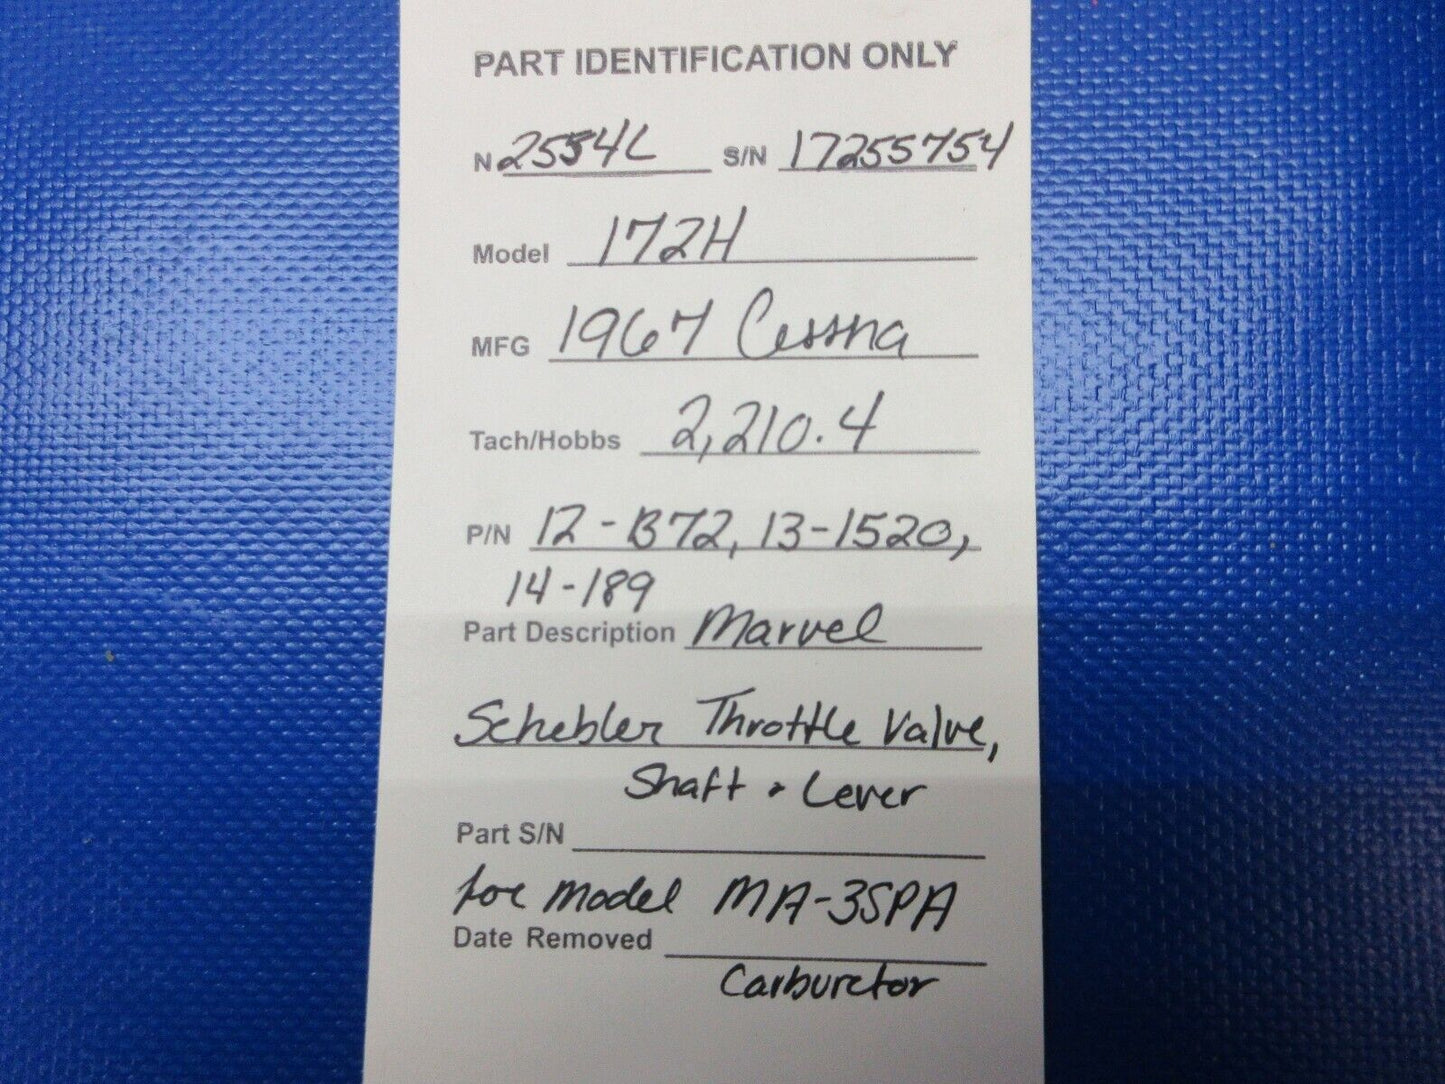 PART IDENTIFICATION ONLY
N 2554L S/N 17255754
Model 172H
MFG 1967 Cessna
Tach/Hobbs 2,210.4
P/N 12-B72, 13-1520,
14-189
Part Description Marvel
Schebler Throttle Valve,
Shaft & Lever
Part S/N
for Model MA-3SPA
Date Removed
Carburetor